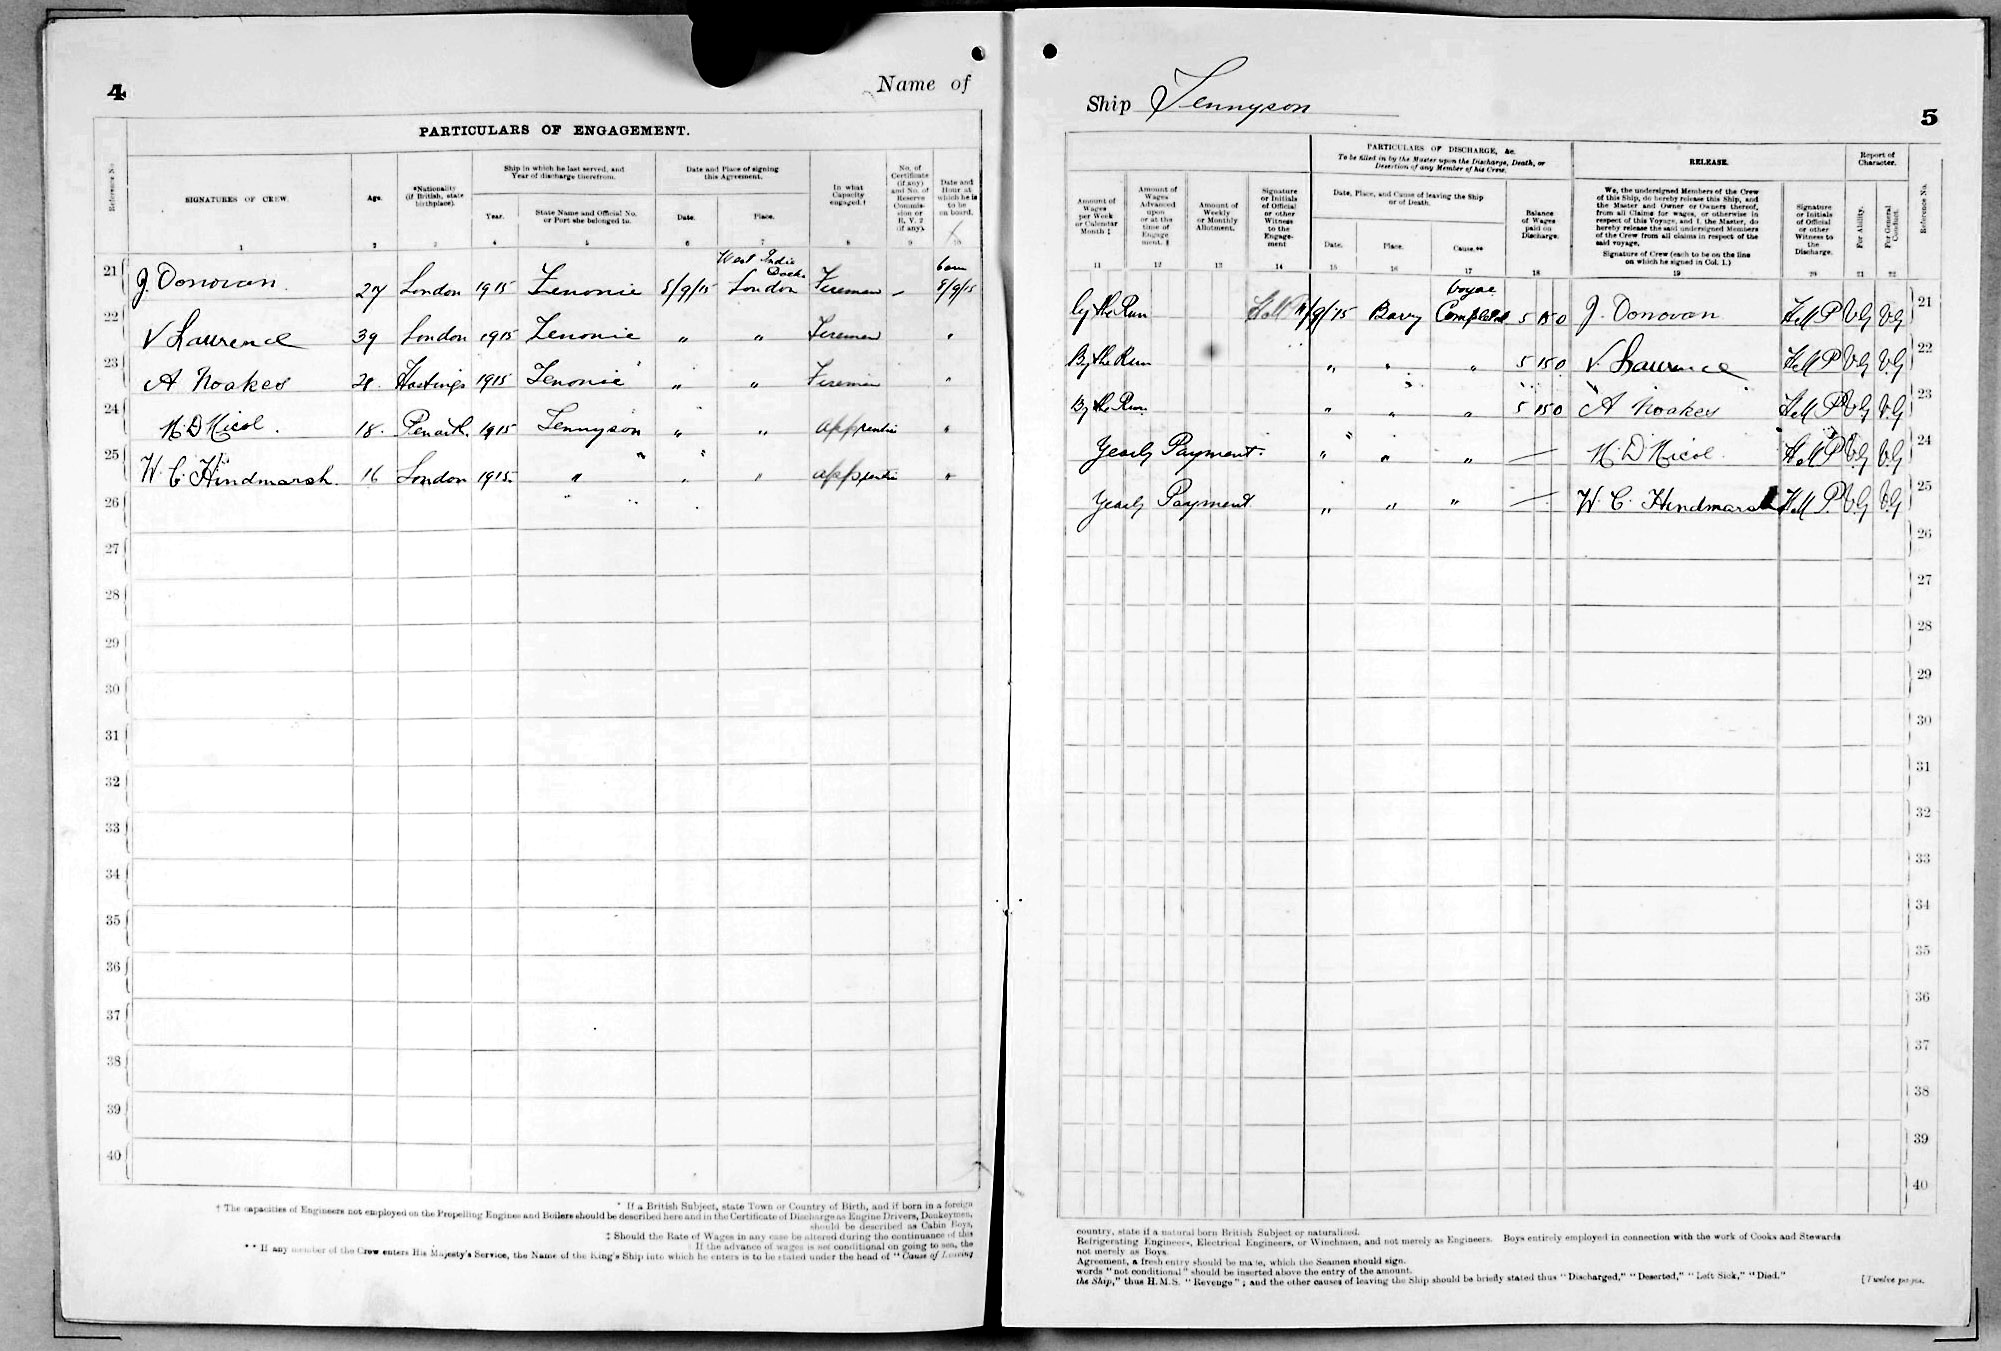 4
Name of
PARTICULARS OF ENGAGEMENT.
Reference No.
SIGNATURES OF CREW.
Age.
*Nationality (if British, state birthplace).
Ship in which he last served, and Year of discharge therefrom.
Year.
State Name and Official No. or Port she belonged to.
Date and Place of signing this Agreement.
Date.
Place.
In what Capacity engaged.†
No. of Certificate (if any) and No. of Reserve Commission or R. V. 2 (if any).
Date and Hour at which he is to be on board.
1 2 3 4 5 6 7 8 9 10
West India Docks
21 J. Donovan. 27 London 1915 Zenonie 8/9/15 London Fireman – 6 am 8/9/15
22 V Laurence 39 London 1915 Zenonie " " Fireman "
23 A Noakes 28. Hastings 1915 Zenonie " " Fireman "
24 N. D Nicol. 18. Penarth. 1915 Tennyson " " apprentice "
25 W. C. Hindmarsh. 16 London 1915. " " " apprentice "
26
27
28
29
30
31
32
33
34
35
36
37
38
39
40
* If a British Subject, state Town or Country of Birth, and if born in a foreign
† The capacities of Engineers not employed on the Propelling Engines and Boilers should be described here and in the Certificate of Discharge as Engine Drivers, Donkeymen,
should be described as Cabin Boys,
‡ Should the Rate of Wages in any case be altered during the continuance of this
If the advance of wages is not conditional on going to sea, the
** If any member of the Crew enters His Majesty's Service, the Name of the King's Ship into which he enters is to be stated under the head of "Cause of Leaving
Ship Tennyson
5
PARTICULARS OF DISCHARGE, &c.
To be filled in by the Master upon the Discharge, Death, or Desertion of any Member of his Crew.
RELEASE.
Report of Character.
Amount of Wages per Week or Calendar Month ‡
Amount of Wages Advanced upon or at the time of Engagement. ‖
Amount of Weekly or Monthly Allotment.
Signature or Initials of Official or other Witness to the Engagement
Date, Place, and Cause of leaving the Ship or of Death.
Date.
Place.
Cause.**
Balance of Wages paid on Discharge.
We, the undersigned Members of the Crew of this Ship, do hereby release this Ship, and the Master and Owner or Owners thereof, from all Claims for wages, or otherwise in respect of this Voyage, and I, the Master, do hereby release the said undersigned Members of the Crew from all claims in respect of the said voyage.
Signature of Crew (each to be on the line on which he signed in Col. 1.)
Signature or Initials of Official or other Witness to the Discharge.
For Ability.
For General Conduct.
Reference No.
11 12 13 14 15 16 17 18 19 20 21 22
By the Run /9/15 Barry Voyage Completed 5 15 0 J. Donovan H M P V.G V.G 21
By the Run " " " 5 15 0 V. Laurence H M P V.G V.G 22
By the Run " " " 5 15 0 A Noakes H M P V.G V.G 23
Yearly Payment. " " " — N. D Nicol. H M P V.G V.G 24
Yearly Payment " " " — W. C. Hindmarsh H M P. V.G V.G 25
26
27
28
29
30
31
32
33
34
35
36
37
38
39
40
country, state if a natural born British Subject or naturalized.
Refrigerating Engineers, Electrical Engineers, or Winchmen, and not merely as Engineers. Boys entirely employed in connection with the work of Cooks and Stewards
not merely as Boys.
Agreement, a fresh entry should be made, which the Seamen should sign.
words "not conditional" should be inserted above the entry of the amount.
the Ship," thus H.M.S. "Revenge"; and the other causes of leaving the Ship should be briefly stated thus "Discharged," "Deserted," "Left Sick," "Died."
[Twelve pages.